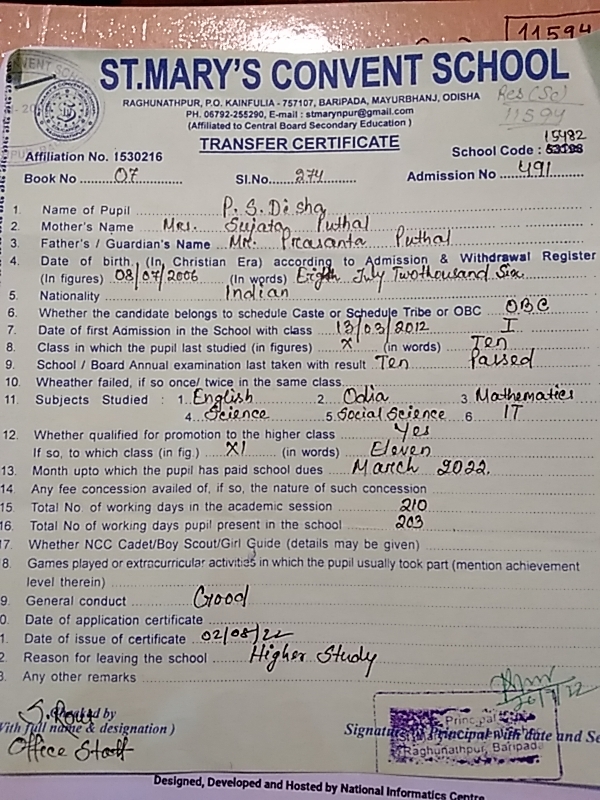 11594
ST.MARY'S CONVENT SCHOOL
RAGHUNATHPUR, P.O. KAINFULIA - 757107, BARIPADA, MAYURBHANJ, ODISHA
PH. 06792-255290, E-mail : stmarynpur@gmail.com
(Affiliated to Central Board Secondary Education )
Res (Sc)
11594
TRANSFER CERTIFICATE
15482
Affiliation No. 1530216 School Code : 53198
Book No 07 Sl.No. 274 Admission No 491
1. Name of Pupil P. S. Disha
2. Mother's Name Mrs. Sujata Puthal
3. Father's / Guardian's Name Mr. Prasanta Puthal
4. Date of birth (In Christian Era) according to Admission & Withdrawal Register
(In figures) 08/07/2006 (In words) Eighth July Twothousand Six
5. Nationality Indian
6. Whether the candidate belongs to schedule Caste or Schedule Tribe or OBC OBC
7. Date of first Admission in the School with class 13/03/2012 I
8. Class in which the pupil last studied (in figures) X (in words) Ten
9. School / Board Annual examination last taken with result Ten Passed
10. Wheather failed, if so once/ twice in the same class
11. Subjects Studied : 1. English 2. Odia 3. Mathematics
4. Science 5. Social Science 6. IT
12. Whether qualified for promotion to the higher class Yes
If so, to which class (in fig.) XI (in words) Eleven
13. Month upto which the pupil has paid school dues March 2022.
14. Any fee concession availed of, if so, the nature of such concession
15. Total No. of working days in the academic session 210
16. Total No. of working days pupil present in the school 203
17. Whether NCC Cadet/Boy Scout/Girl Guide (details may be given)
8. Games played or extracurricular activities in which the pupil usually took part (mention achievement
level therein)
9. General conduct Good
0. Date of application certificate
1. Date of issue of certificate 02/08/22
2. Reason for leaving the school Higher Study
3. Any other remarks
S. Rout
Checked by
With full name & designation )
Office Staff
Signature of Principal with date and Se
Principal
Raghunathpur, Baripada
Designed, Developed and Hosted by National Informatics Centre